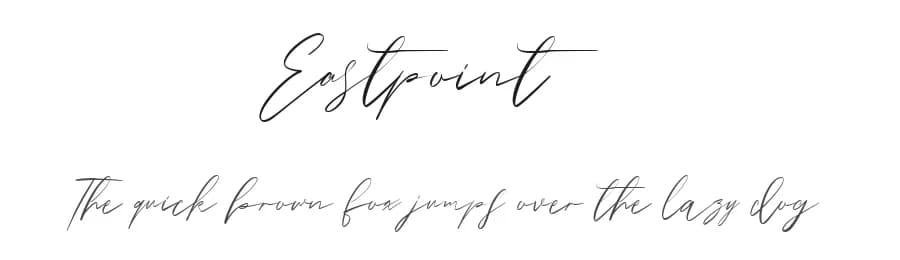 Eastpoint
The quick brown fox jumps over the lazy dog